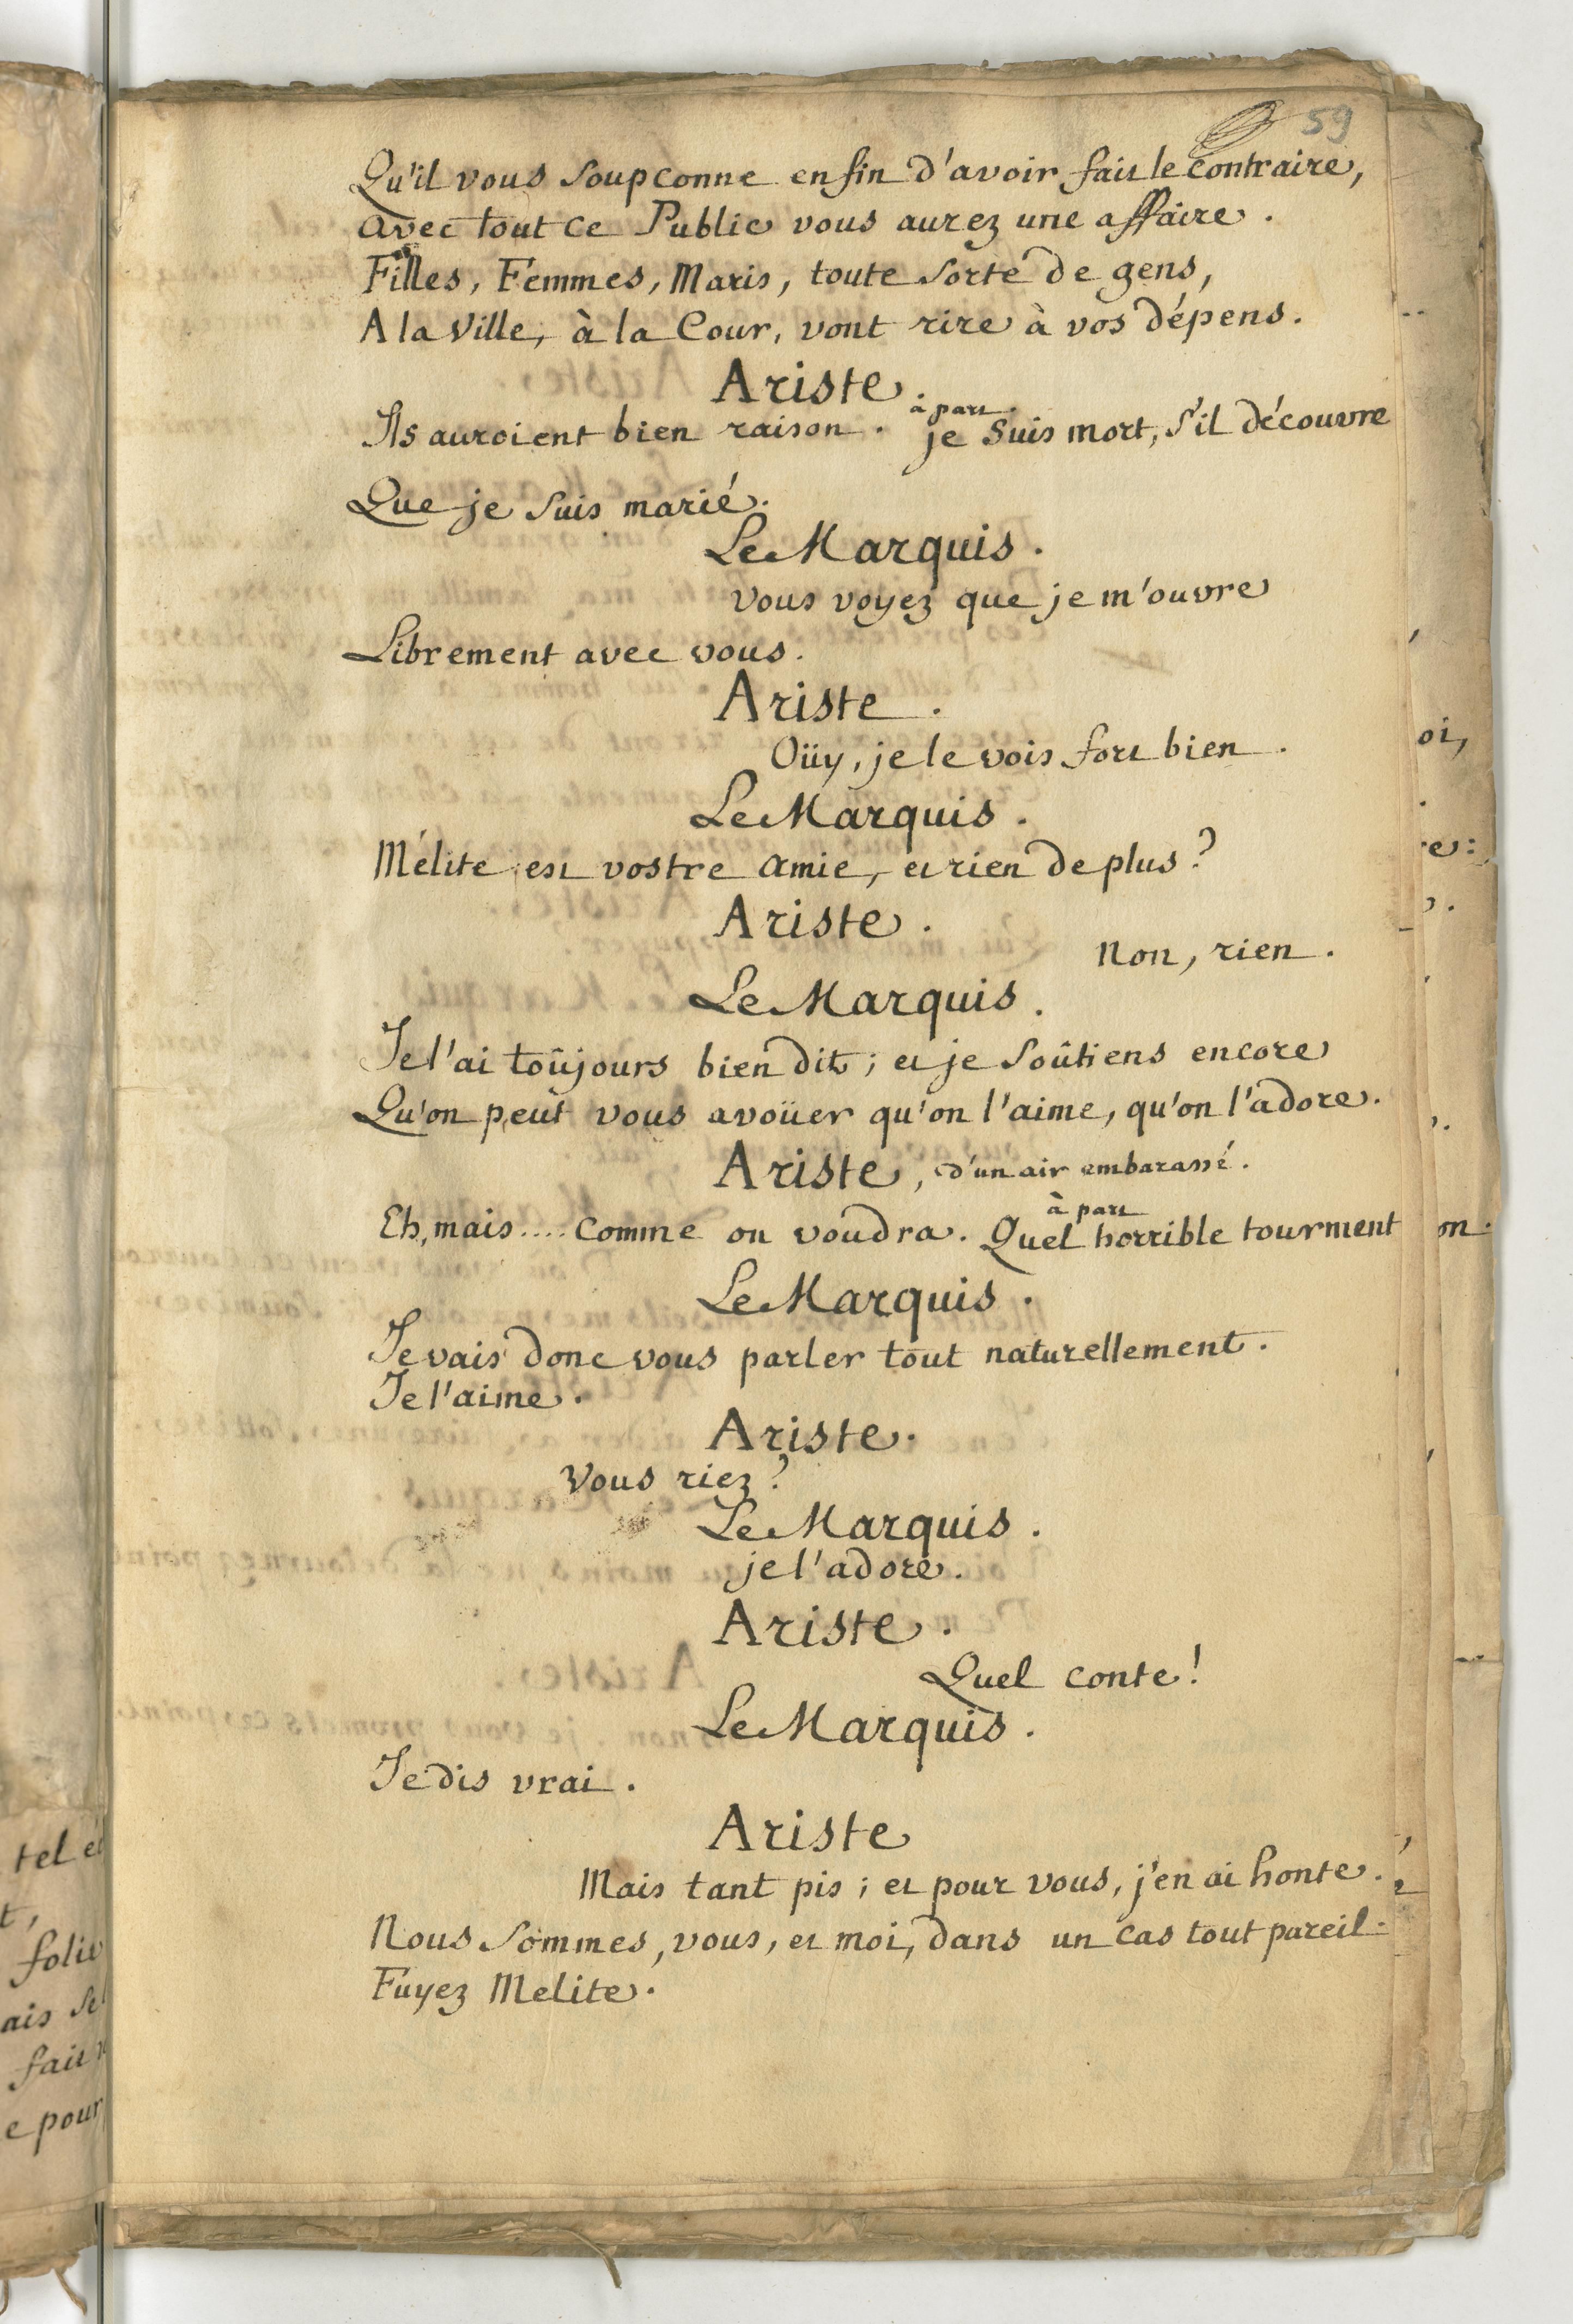 59
Qu'il vous soupçonne enfin d'avoir fait le contraire,
avec tout ce Public vous aurez une affaire.
Filles, Femmes, Maris, toute sorte de gens,
A la Ville, à la Cour, vont rire à vos dépens.
Ariste.
à part.
Ils auroient bien raison. je suis mort, s'il découvre
Que je suis marié.
Le Marquis.
vous voyez que je m'ouvre
Librement avec vous.
Ariste.
Oüy, je le vois fort bien.
Le Marquis.
Mélite est vostre amie, et rien de plus?
Ariste.
non, rien.
Le Marquis.
Je l'ai toûjours bien dit; et je soûtiens encore
Qu'on peut vous avoüer qu'on l'aime, qu'on l'adore.
Ariste, d'un air embarassé.
à part
Eh, mais.... comme on voudra. Quel horrible tourment
Le Marquis.
Je vais donc vous parler tout naturellement.
Je l'aime.
Ariste.
Vous riez?
Le Marquis.
je l'adore.
Ariste.
Quel conte!
Le Marquis.
Je dis vrai.
Ariste
Mais tant pis; et pour vous, j'en ai honte.
Nous sommes, vous, et moi, dans un cas tout pareil.
Fuyez Melite.
tel
folie
ais
fait
e pour
oi,
on.